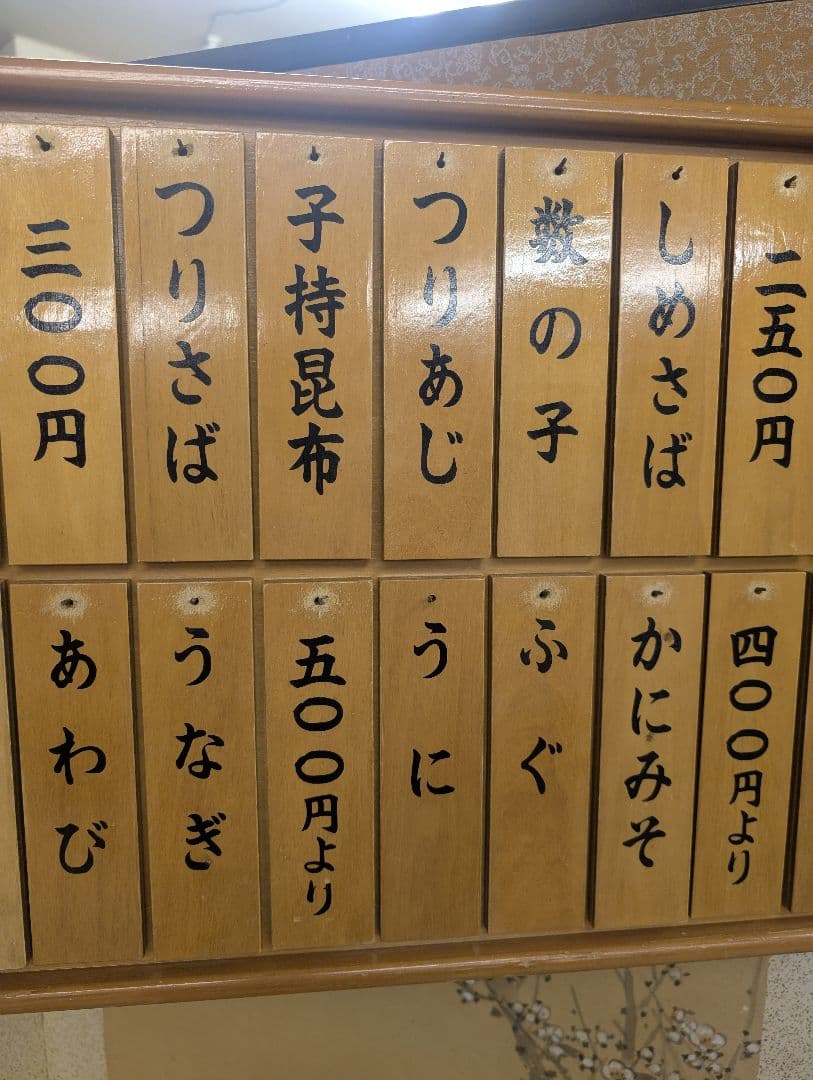 二五〇円
しめさば
数の子
つりあじ
子持昆布
つりさば
三〇〇円
四〇〇円より
かにみそ
ふぐ
うに
五〇〇円より
うなぎ
あわび